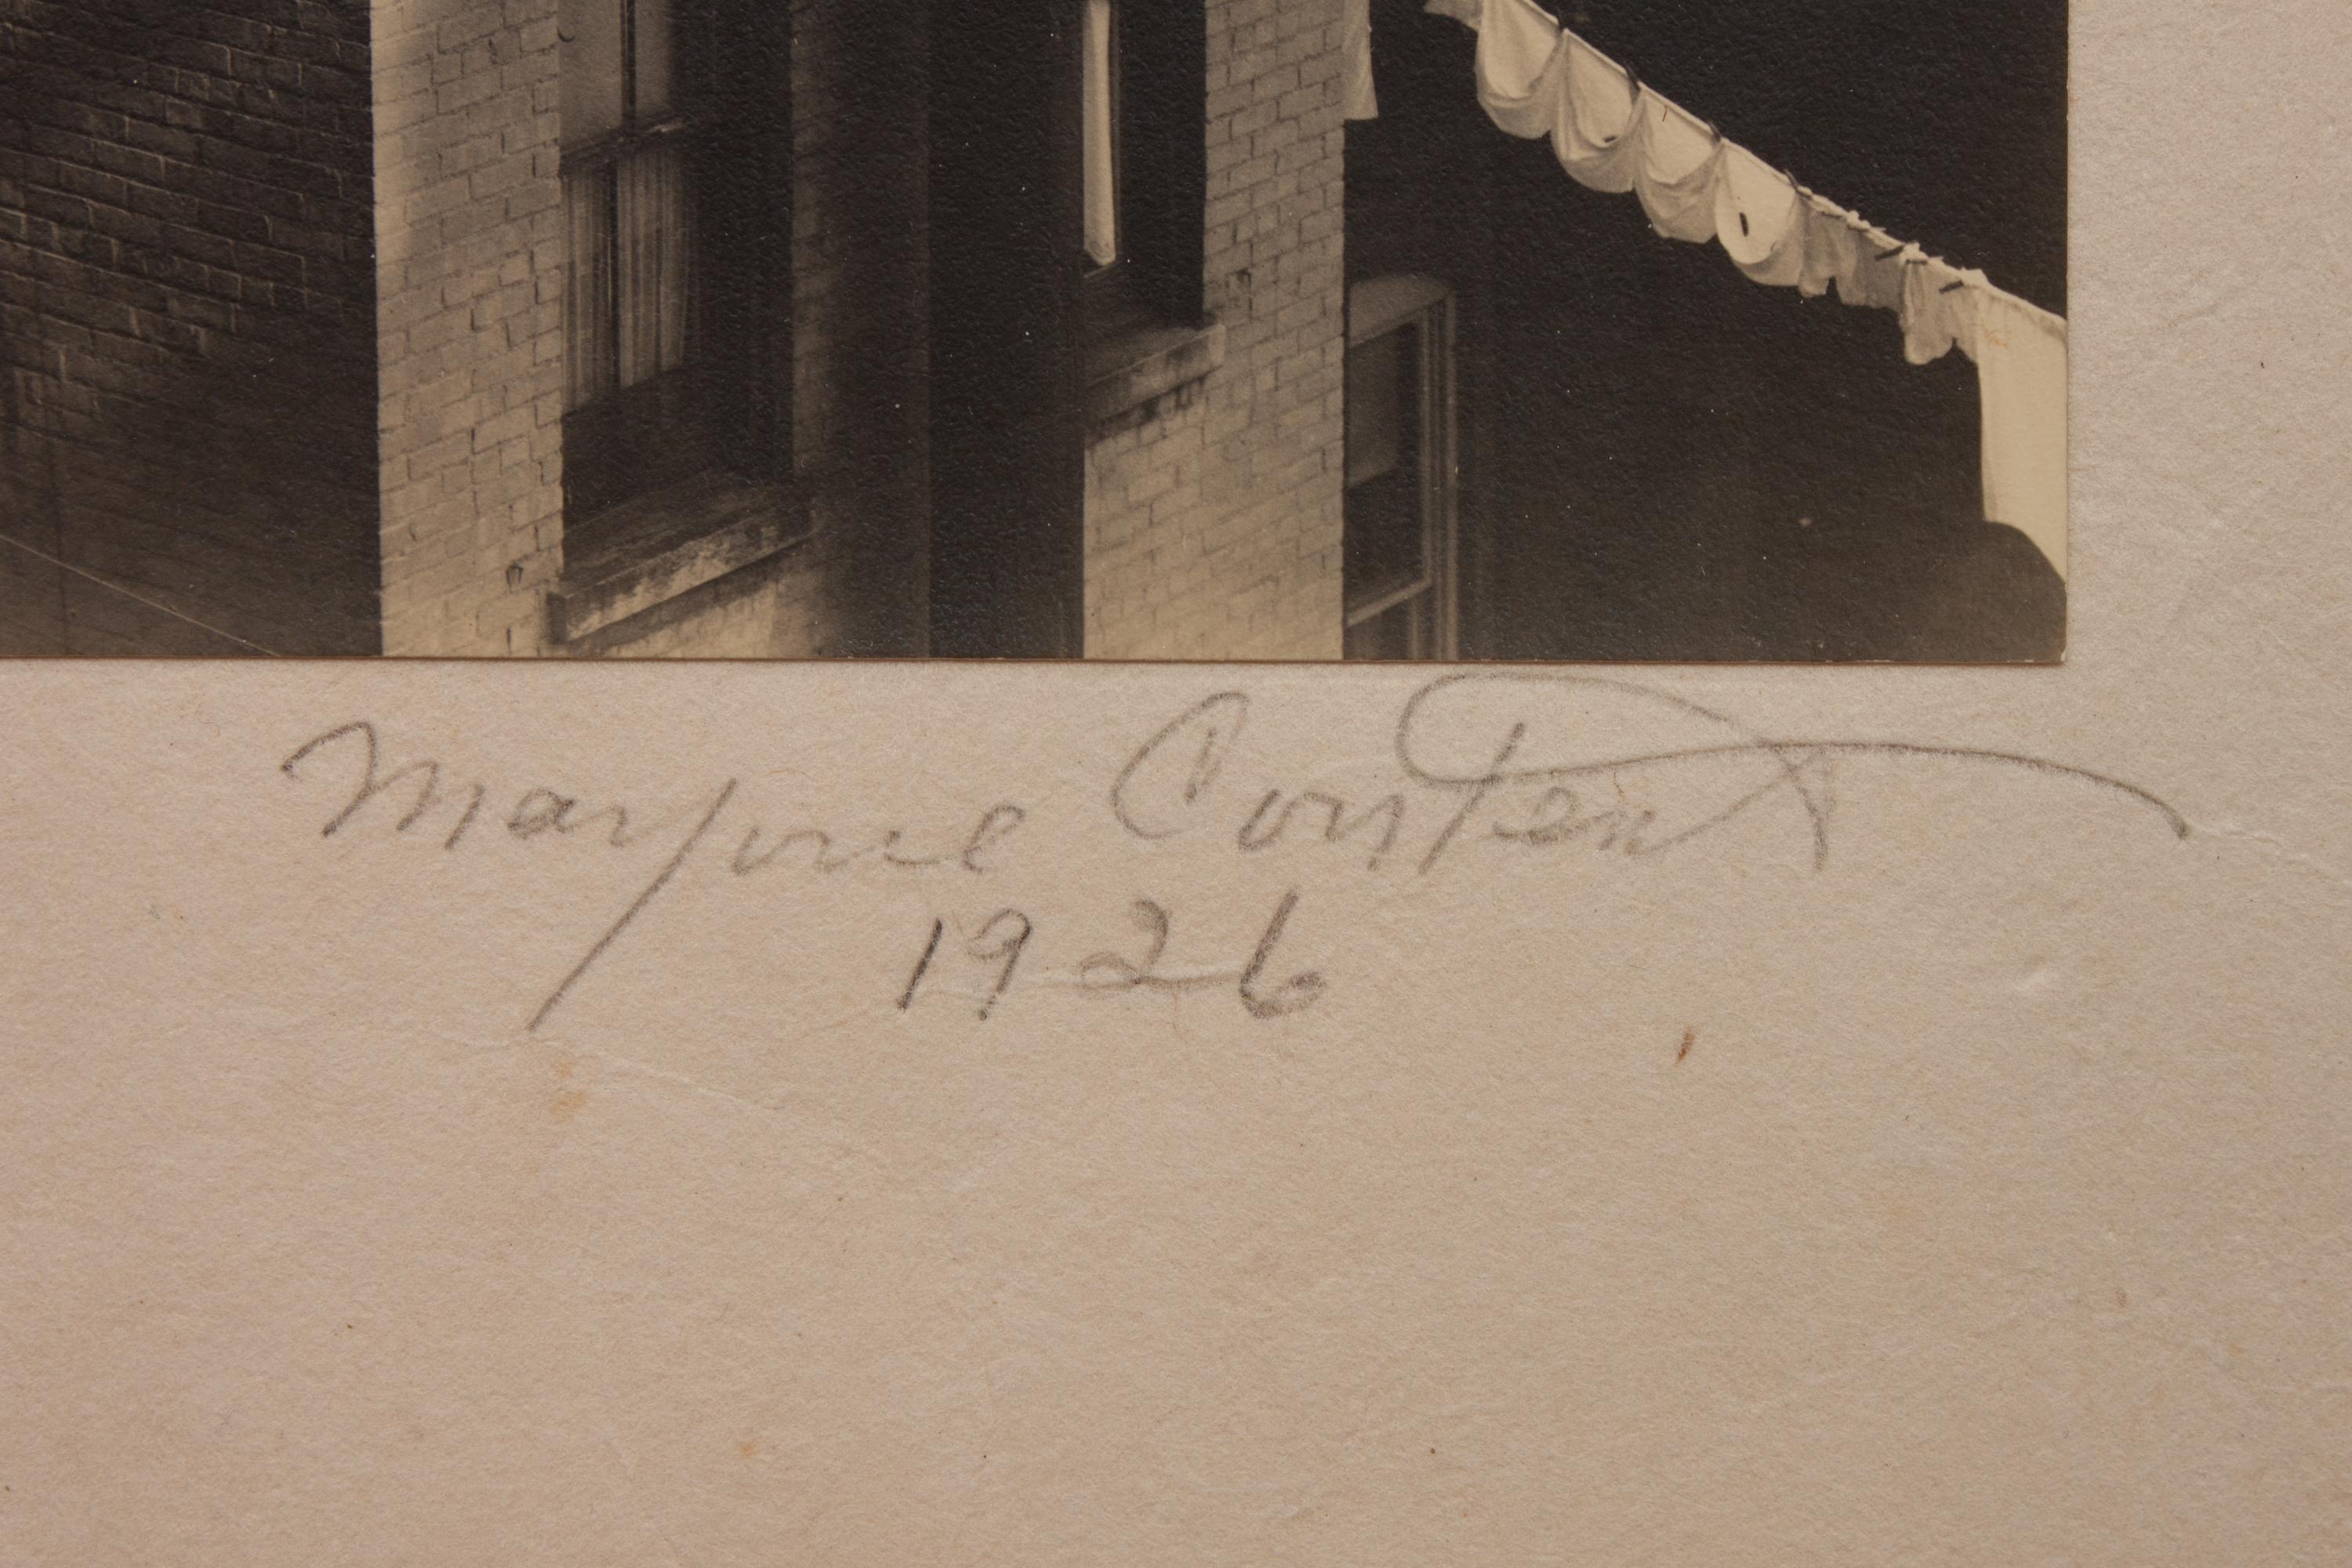 Marjorie Content
1926